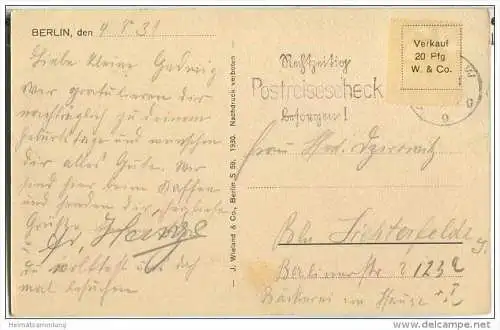 BERLIN, den 4 V 31
Liebe kleine Hedwig
Wir gratulieren dir
nachträglich zu deinem
Geburtstage und wünschen
dir alles Gute. Wir
sind hier beim Kaffee
und senden dir herzliche
Grüße.
du wolltest uns doch
mal besuchen
J. Wieland & Co., Berlin S 59. 1930. Nachdruck verboten
Rechtzeitig
Postreisescheck
besorgen!
Verkauf
20 Pfg
W. & Co.
9
Frau Hed.
Bln Lichterfelde
Berlinerstr 123a
Bäckerei im Hause
Heimatsammlung